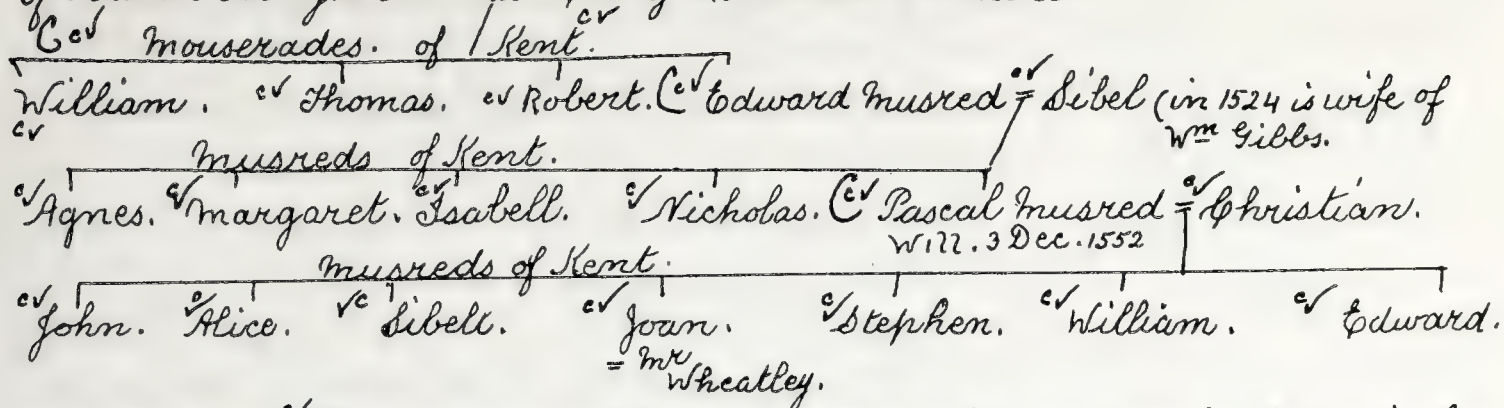 Mouserades. of Kent.
William. Thomas. Robert. Edward Musred = Sibel (in 1524 is wife of
Wm Gibbs.
Musreds of Kent.
Agnes. Margaret. Isabell. Nicholas. Pascal Musred = Christian.
Will. 3 Dec. 1552
Musreds of Kent.
John. Alice. Sibell. Joan. Stephen. William. Edward.
= Mr
Wheatley.